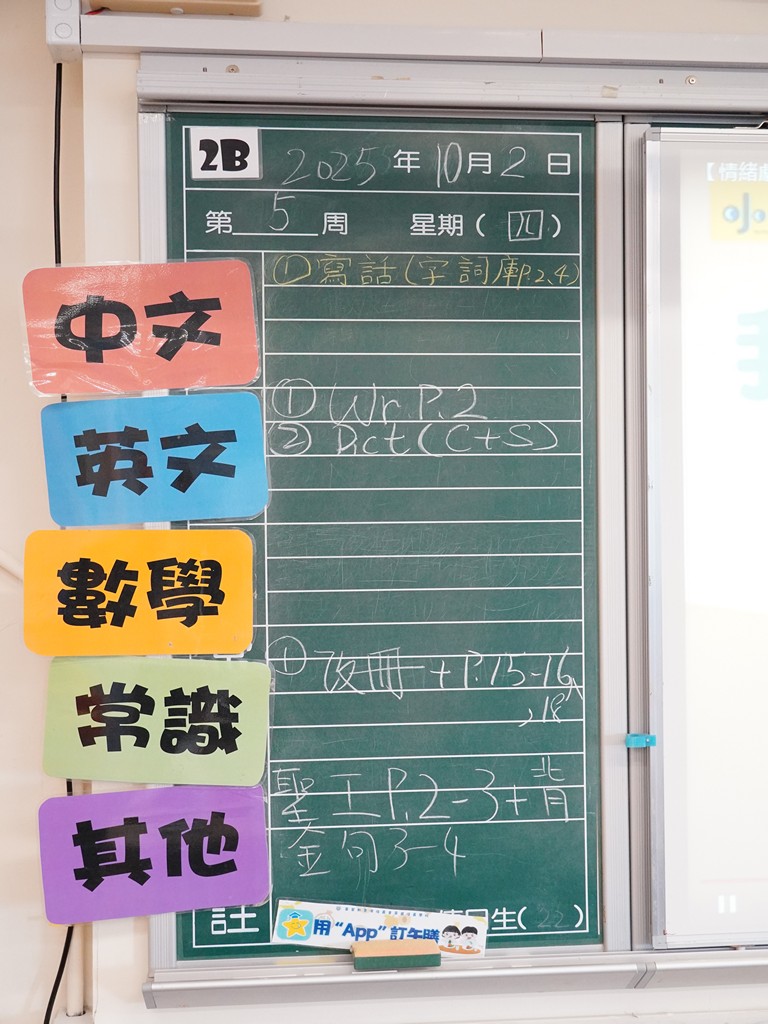 2B 2025年10月2日
第5周 星期(四)
中文
①寫話(字詞庫P.2,4)
英文
① Wr P.2
② Dict (C+S)
數學
常識
① 改冊+P.15-16
,18
其他
聖工P.2-3+背
金句3-4
註
用“App”訂午膳
生(22)
【情緒
小